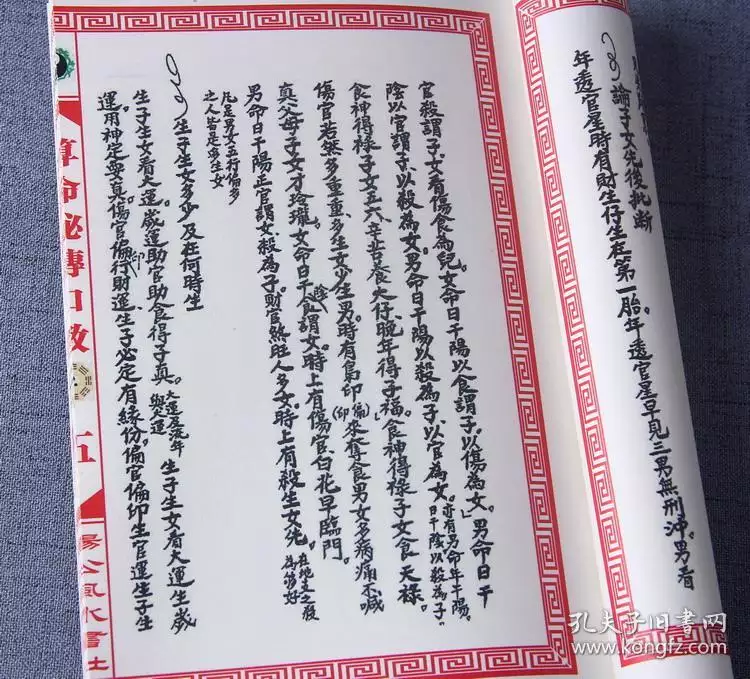 論子女先後批断
年透官星時有財生仔生在第一胎。年透官星早見三男無刑沖。男看
官殺謂子女看傷食為兒。女命日干陽以食謂子。以傷為女。男命日干
陰以官謂子。以殺為女。男命日干陽以殺為子。以官為女。
亦有男命年干陽。
日干陰以殺為子。
食神得祿子女五六。辛苦養大仔。晚年得子福。食神得祿子女食天祿。
傷官若然多重重、多生女少生男。時有梟印(偏印)來奪食男女多病痛不喊
真父母子女才玲瓏。女命日干陰食謂女。時上有傷官、白花早臨門。
男命日干陽正官謂女殺為子財官煞旺人多女。時上有殺生女先。
在地生之殺
為第好
凡是男女五行偏多
之人皆定多生女
生子生女多少及在何時生
生子生女看大運。歲運助官助食得子真。
大運屋流年
與大運
生子生女看大運生歲
運用神定要真。傷官偏印行財運生子必定有緣份。偏官偏印生官運生子生
算命秘傳口教
五
楊公風水書社
孔夫子旧书网
www.kongfz.com